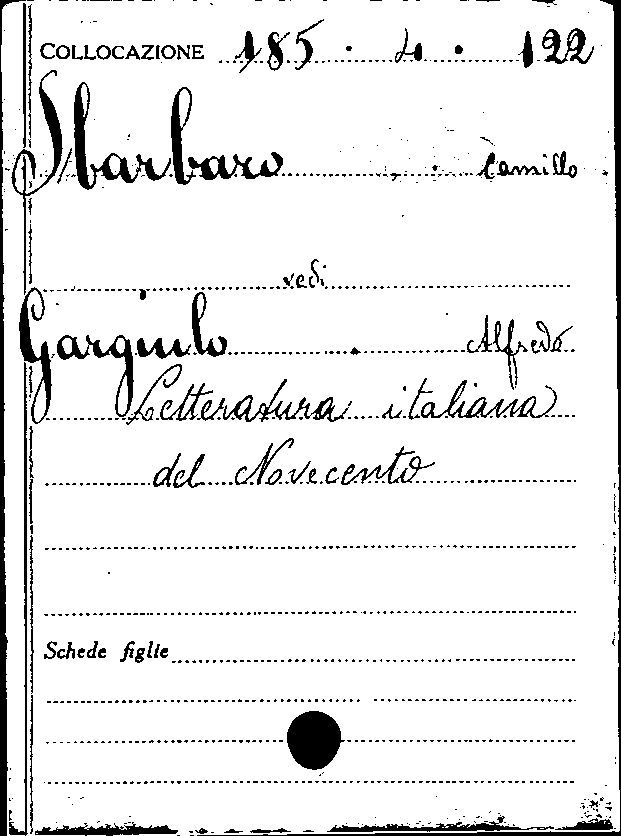 COLLOCAZIONE 185 . 4 . 122
Sbarbaro Camillo
vedi
Gargiulo Alfredo
Letteratura italiana
del Novecento
Schede figlie